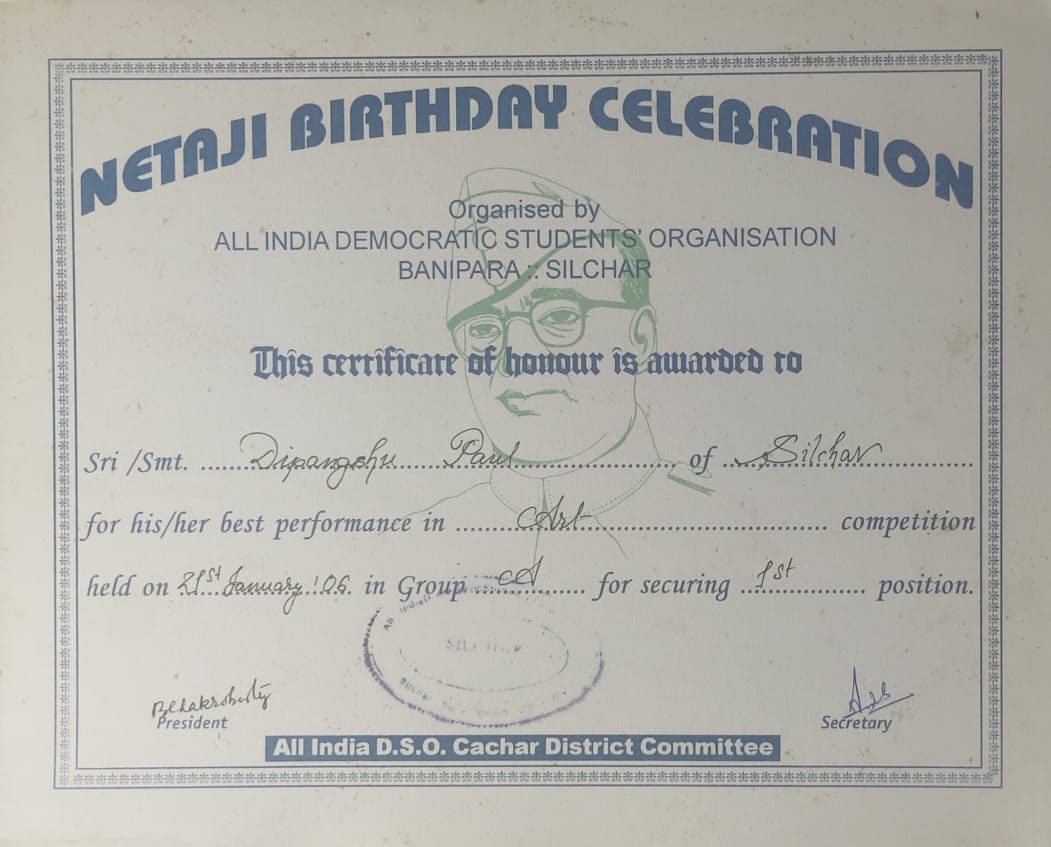 NETAJI BIRTHDAY CELEBRATION
Organised by
ALL INDIA DEMOCRATIC STUDENTS' ORGANISATION
BANIPARA :: SILCHAR
This certificate of honour is awarded to
Sri /Smt. ........Dipangshu......Paul............................, of ...Silchar...............
for his/her best performance in ........Art.................................... competition
held on 21st January '06. in Group ...A....... for securing ..1st.............. position.
All India
SILCHAR
Silchar
BChakroborty
President
Secretary
All India D.S.O. Cachar District Committee